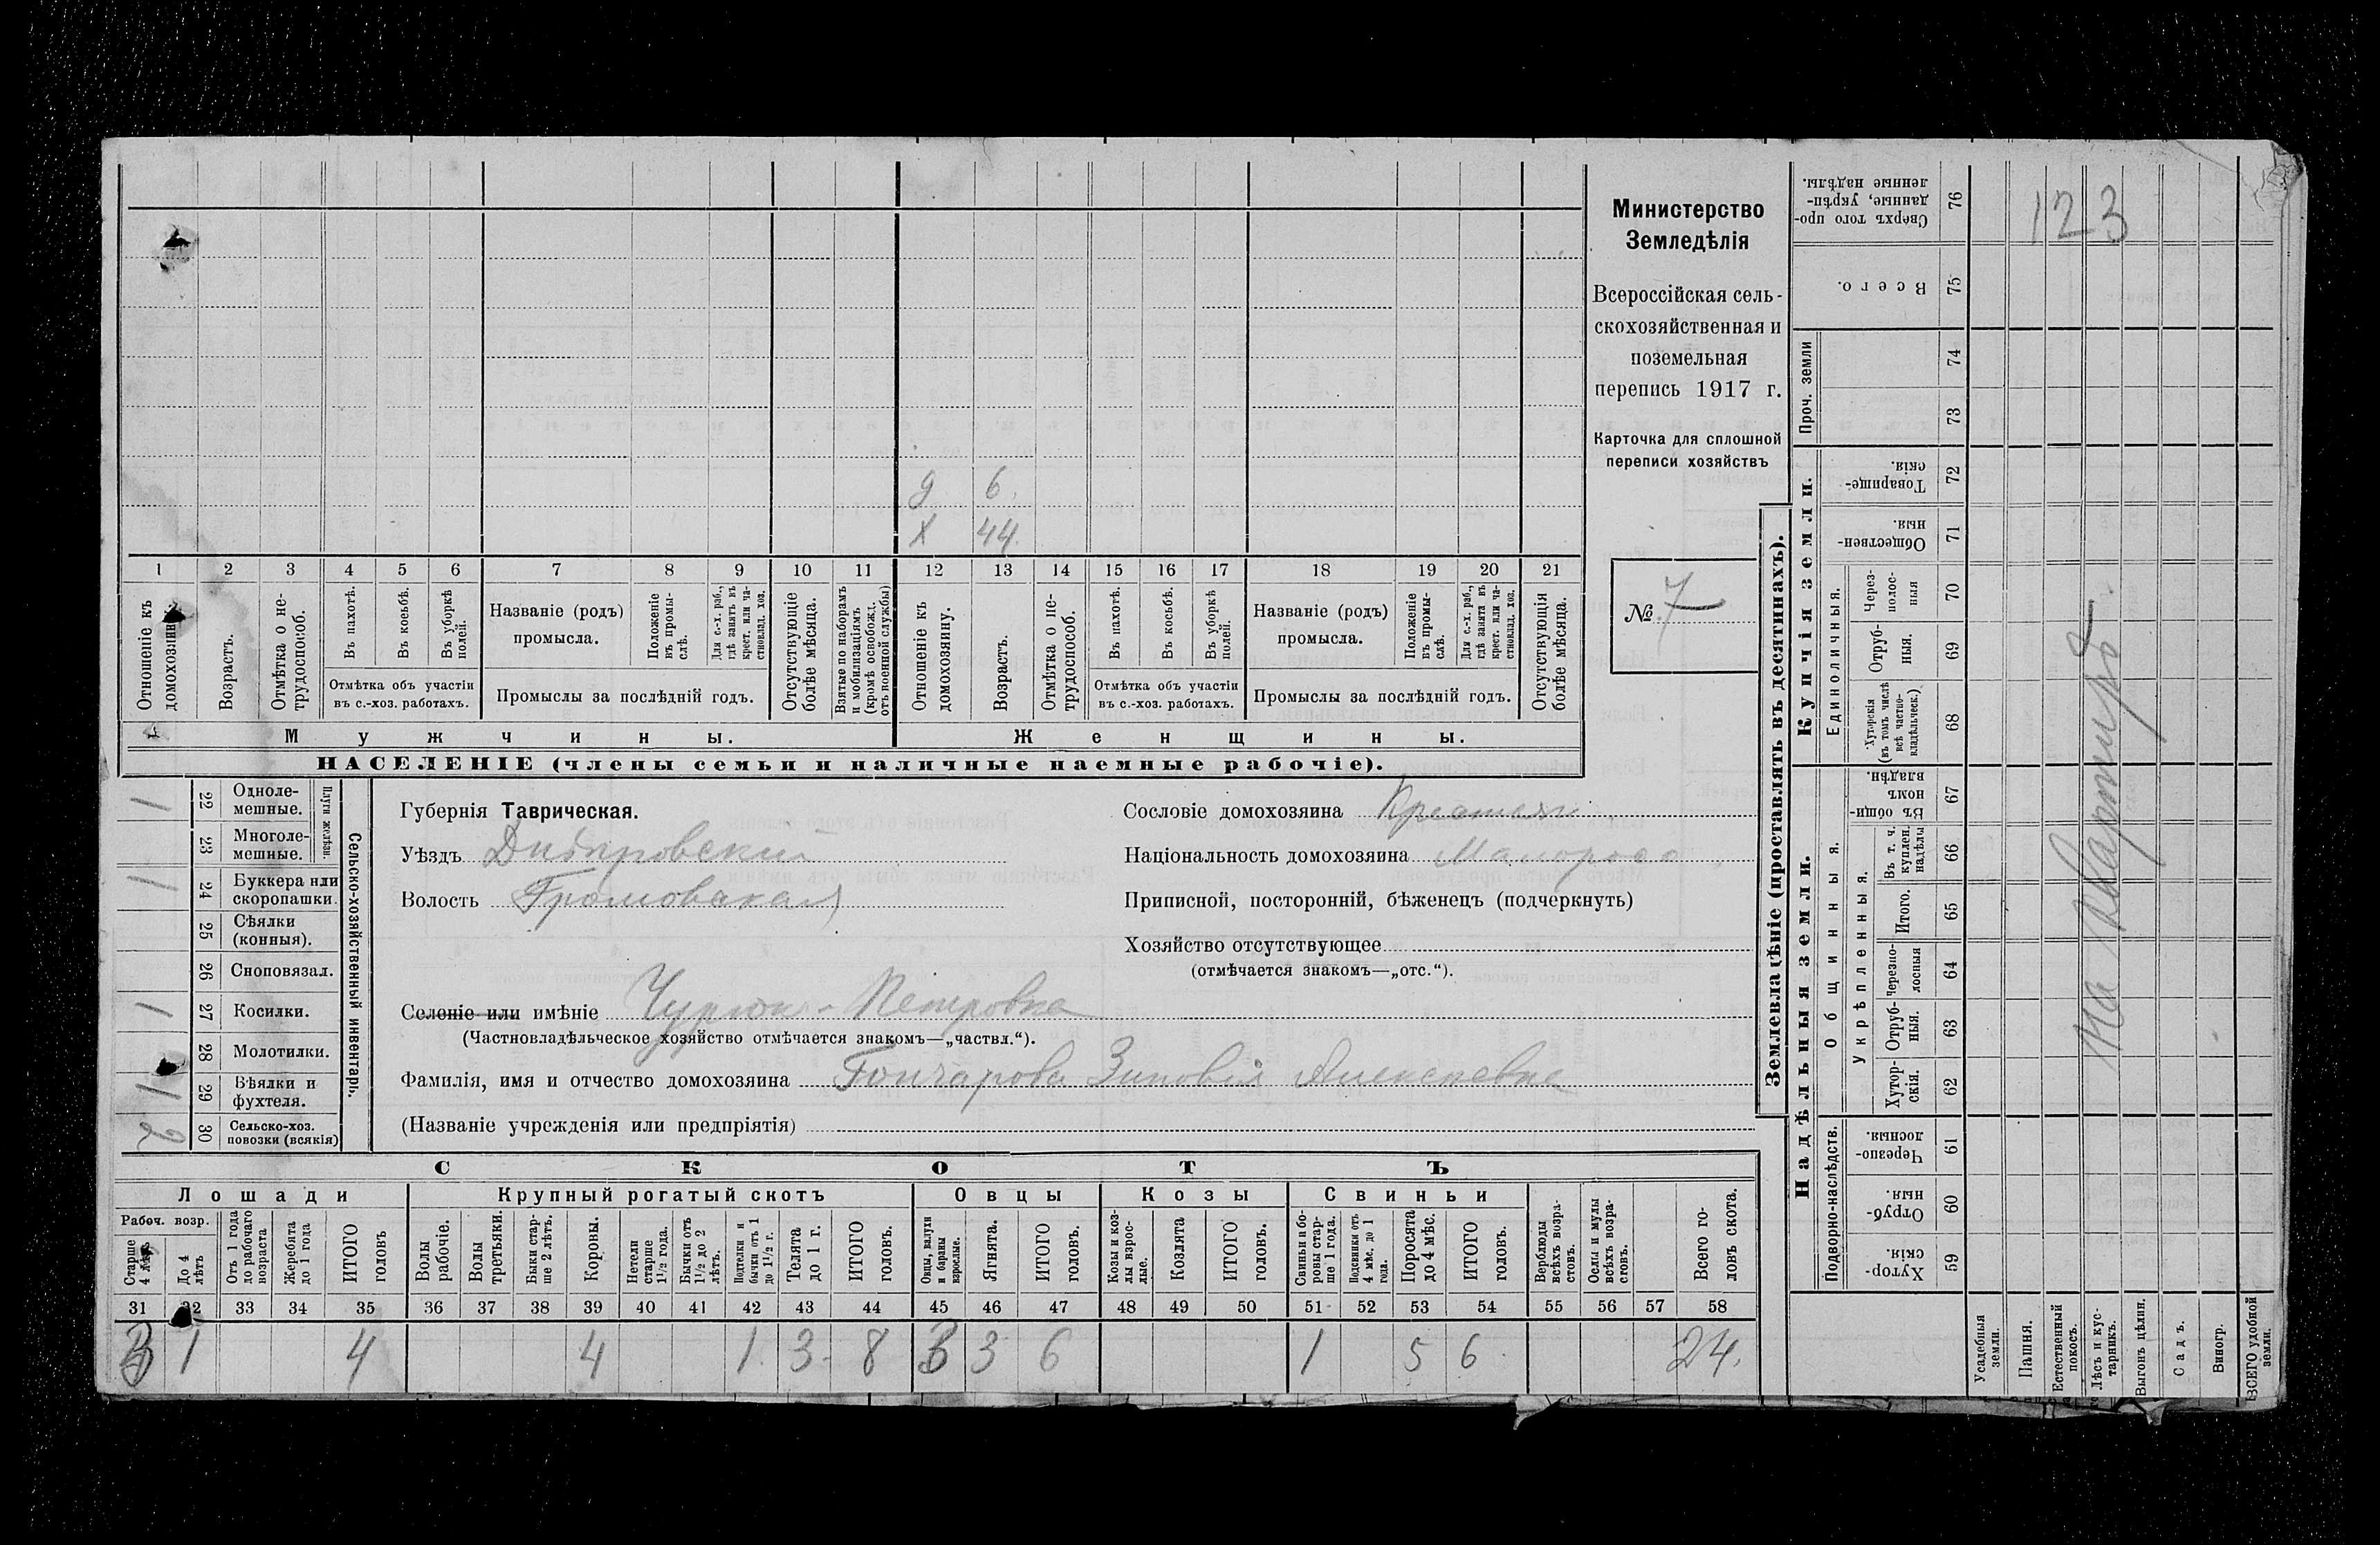 Министерство
Земледѣлія
Всероссійская сель-
скохозяйственная и
поземельная
перепись 1917 г.
Карточка для сплошной
переписи хозяйствъ
№ 7
д 6.
Х 44.
1 2 3 4 5 6 7 8 9 10 11 12 13 14 15 16 17 18 19 20 21
Отношеніе къ домохозяину.
Возрастъ.
Отмѣтка о не-трудоспособ.
Въ пахотѣ.
Въ косьбѣ.
Въ уборкѣ полей.
Отмѣтка объ участіи
въ с.-хоз. работахъ.
Названіе (родъ)
промысла.
Положеніе въ промы-слѣ.
Для с.-х. раб., гдѣ занятъ въ крест. или ча-стновлад. хоз.
Промыслы за послѣдній годъ.
Отсутствующіе болѣе мѣсяца.
Взятые по наборамъ и мобилизаціямъ (кромѣ освобожд. отъ военной службы)
Отношеніе къ домохозяину.
Возрастъ.
Отмѣтка о не-трудоспособ.
Въ пахотѣ.
Въ косьбѣ.
Въ уборкѣ полей.
Отмѣтка объ участіи
въ с.-хоз. работахъ.
Названіе (родъ)
промысла.
Положеніе въ промы-слѣ.
Для с.-х. раб., гдѣ занята въ крест. или ча-стновлад. хоз.
Промыслы за послѣдній годъ.
Отсутствующія болѣе мѣсяца.
Мужчины. Женщины.
НАСЕЛЕНІЕ (члены семьи и наличные наемные рабочіе).
Сельско-хозяйственный инвентарь.
Плуги желѣзн.
1 22 Одноле-мешные.
23 Многоле-мешные.
1 24 Буккера или скоропашки.
25 Сѣялки (конныя).
26 Сноповязал.
1 27 Косилки.
28 Молотилки.
1 29 Вѣялки и фухтеля.
2 30 Сельско-хоз. повозки (всякія)
Губернія Таврическая.
Уѣздъ Днѣпровский
Волость Громовская
Сословіе домохозяина Крестьян
Національность домохозяина Малоросс
Приписной, посторонній, бѣженецъ (подчеркнуть)
Хозяйство отсутствующее
(отмѣчается знакомъ—„отс.“).
Селеніе или имѣніе Чурюк-Петровка
(Частновладѣльческое хозяйство отмѣчается знакомъ—„частвл.“).
Фамилія, имя и отчество домохозяина Гончарова Зиновія Алексеевна
(Названіе учрежденія или предпріятія)
СКОТЪ
Лошади Крупный рогатый скотъ Овцы Козы Свиньи
Рабоч. возр.
Старше 4 лѣтъ
До 4 лѣтъ
Отъ 1 года до рабочаго возраста
Жеребята до 1 года
ИТОГО головъ
Волы рабочіе.
Волы третьяки.
Быки стар-ше 2 лѣтъ.
Коровы.
Нетели старше 1½ года.
Бычки отъ 1½ до 2 лѣтъ.
Подтелки и бычки отъ 1 до 1½ г.
Телята до 1 г.
ИТОГО головъ.
Овцы, валухи и бараны взрослые.
Ягнята.
ИТОГО головъ.
Козы и коз-лы взрос-лые.
Козлята
ИТОГО головъ.
Свиньи и бо-ровы стар-ше 1 года.
Подсвинки отъ 4 мѣс. до 1 года.
Поросята до 4 мѣс.
ИТОГО головъ.
Верблюды всѣхъ возра-стовъ.
Ослы и мулы всѣхъ возра-стовъ.
Всего го-ловъ скота.
31 32 33 34 35 36 37 38 39 40 41 42 43 44 45 46 47 48 49 50 51 52 53 54 55 56 57 58
3 1 4 4 1 3 8 3 3 6 1 5 6 24.
Землевладѣніе (проставлять въ десятинахъ).
Надѣльныя земли. Купчія земли.
Подворно-наслѣдств.
Общинныя.
Укрѣпленныя.
Единоличныя.
Проч. земли
Хутор-скія. 59
Отруб-ныя. 60
Черезпо-лосныя. 61
Хутор-скія. 62
Отруб-ныя. 63
Черезпо-лосныя 64
Итого. 65
Въ т. ч. куплен. надѣлы 66
Въ общин-номъ владѣн. 67
Хуторскія (въ томъ числѣ всѣ частно-владѣльческ.) 68
Отруб-ныя. 69
Через-полос-ныя 70
Обществен-ныя. 71
Товарище-скія. 72
73
74
Всего. 75
Сверхъ того про-данные, укрѣп-ленные надѣлы. 76
Усадебныя земли.
Пашня.
Естественный покосъ.
Лѣсъ и кус-тарникъ.
Выгонъ цѣлин.
Садъ.
Виногр.
ВСЕГО удобной земли.
123
на